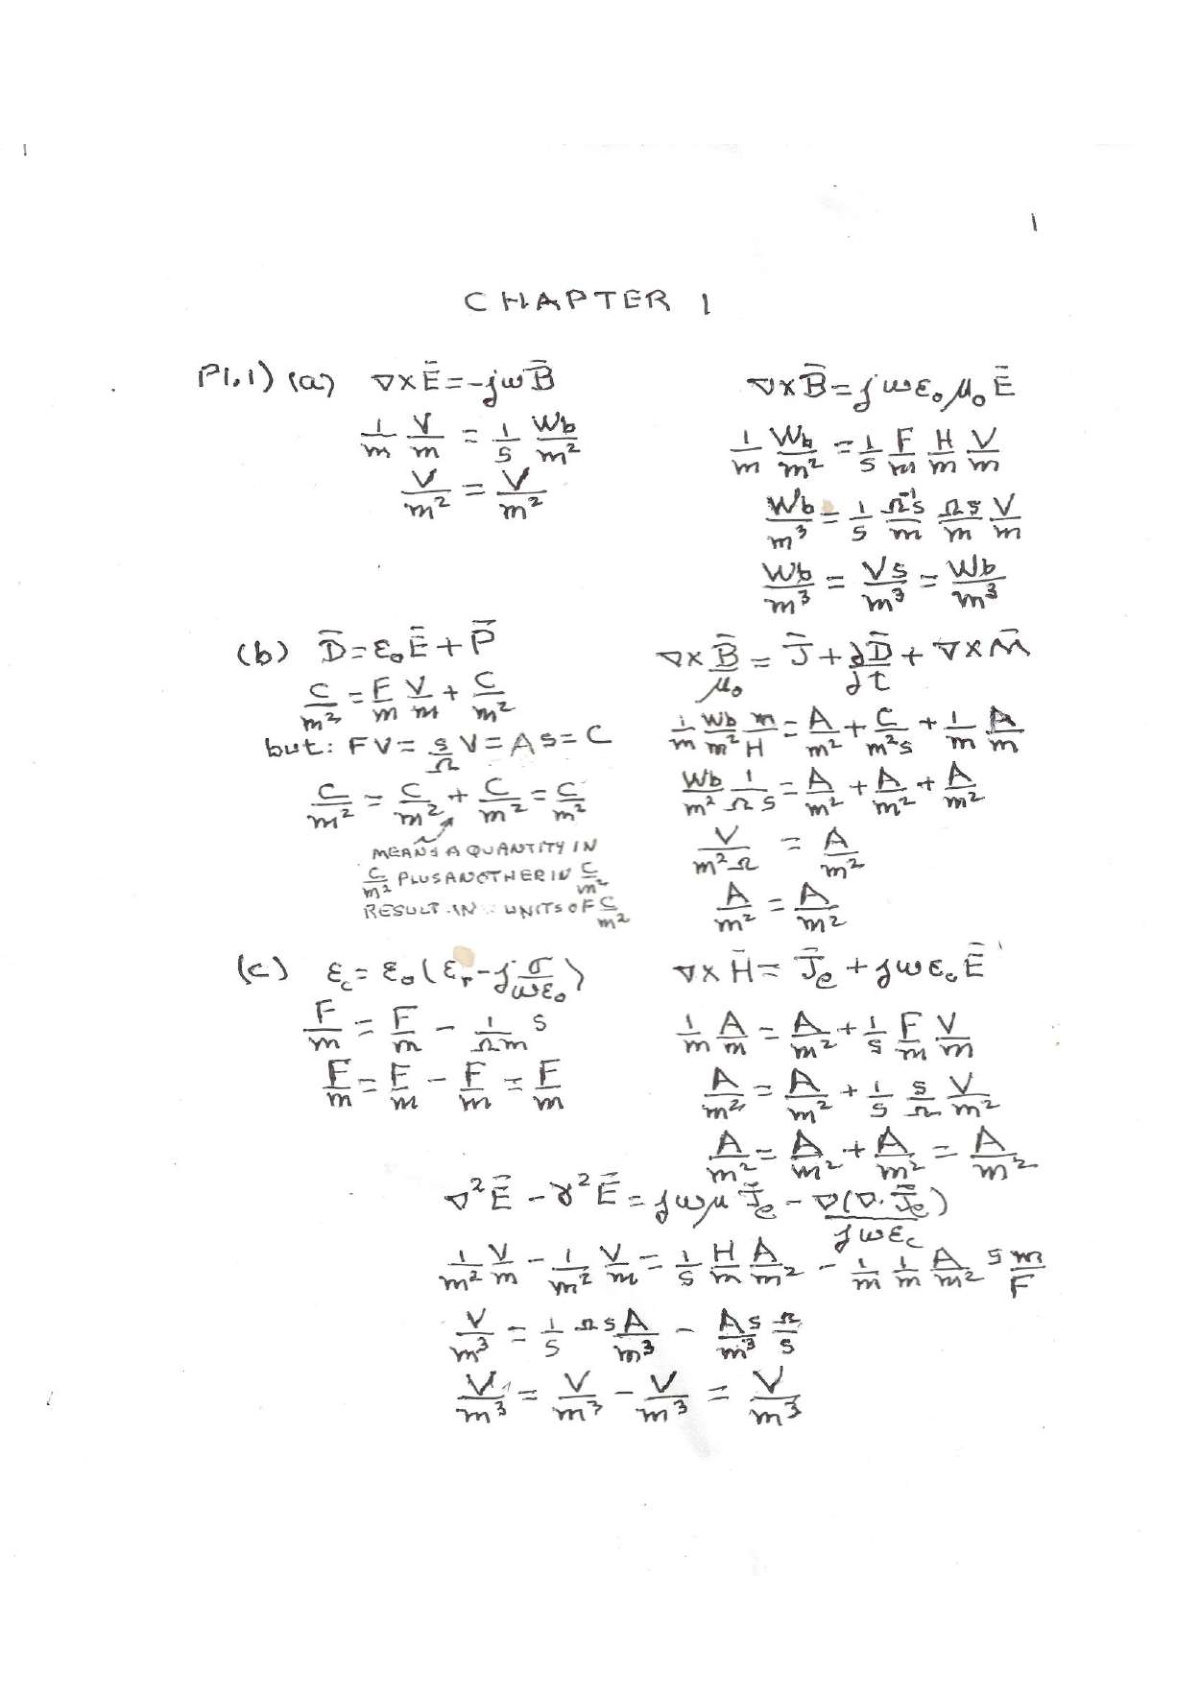 1
CHAPTER 1
P1.1) (a) ∇×Ē=-jωB̄
1/m V/m = 1/s Wb/m²
V/m² = V/m²
∇×B̄=jωε₀μ₀Ē
1/m Wb/m² = 1/s F/m H/m V/m
Wb/m³ = 1/s Ω⁻¹s/m Ωs/m V/m
Wb/m³ = Vs/m³ = Wb/m³
(b) D̄=ε₀Ē+P̄
C/m² = F/m V/m + C/m²
but: FV= s/Ω V=As=C
C/m² = C/m² + C/m² = C/m²
MEANS A QUANTITY IN
C/m² PLUS ANOTHER IN C/m²
RESULT IN UNITS OF C/m²
∇×B̄/μ₀ = J̄+∂D̄/∂t+∇×M̄
1/m Wb/m² m/H = A/m² + C/m²s + 1/m A/m
Wb/m² 1/Ωs = A/m² + A/m² + A/m²
V/m²Ω = A/m²
A/m² = A/m²
(c) ε_c=ε₀(ε_r-j σ/ωε₀)
F/m = F/m - 1/Ωm s
F/m = F/m - F/m = F/m
∇×H̄= J̄_e+jωε_cĒ
1/m A/m = A/m² + 1/s F/m V/m
A/m² = A/m² + 1/s s/Ω V/m²
A/m² = A/m² + A/m² = A/m²
∇²Ē-γ²Ē=jωμJ̄_e-∇(∇·J̄_e)/jωε_c
1/m² V/m - 1/m² V/m = 1/s H/m A/m² - 1/m 1/m A/m² s m/F
V/m³ = 1/s Ωs A/m³ - As/m³ Ω/s
V/m³ = V/m³ - V/m³ = V/m³